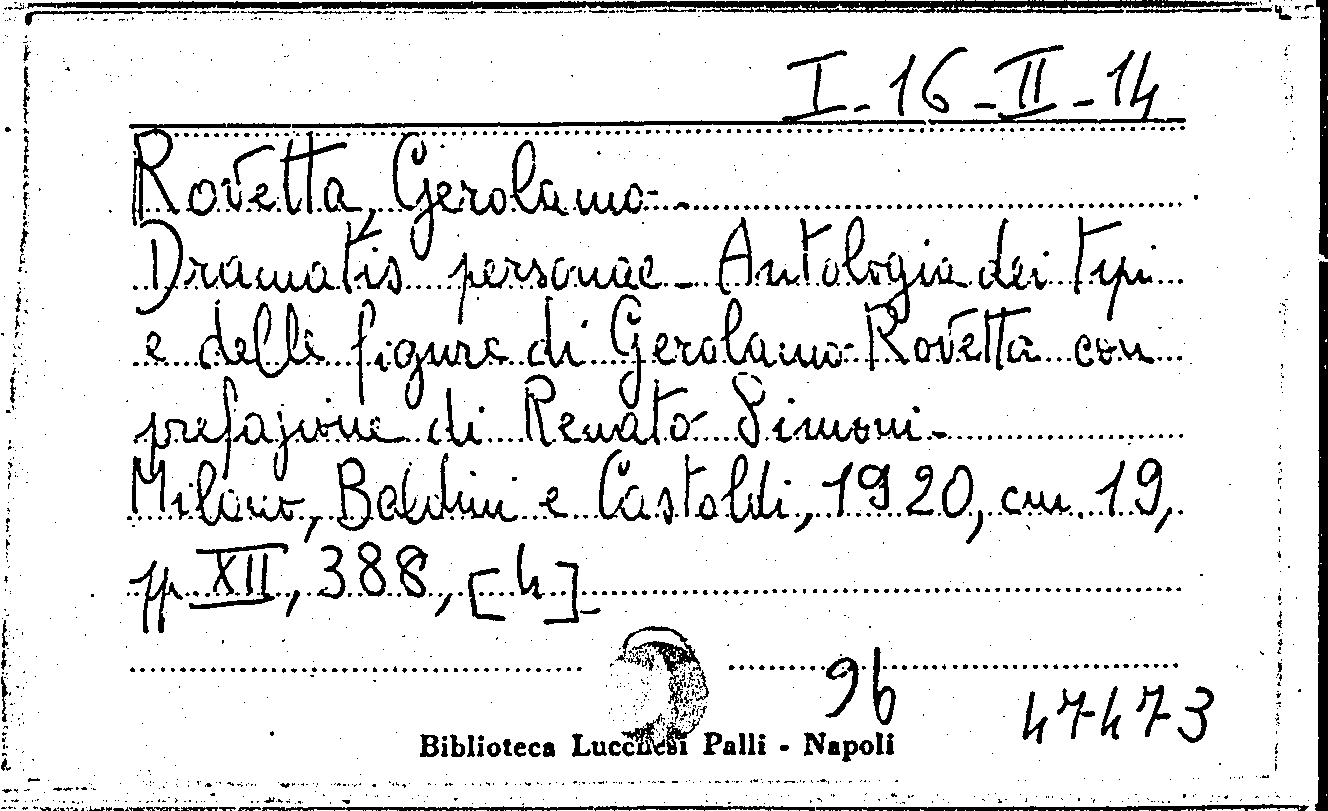 I-16-II-14
Rovetta, Gerolamo-
Dramatis personae - Antologia dei tipi
e delle figure di Gerolamo Rovetta con
prefazione di Renato Simoni-
Milano, Baldini e Castoldi, 1920, cm. 19,
pp XII, 388, [4]-
96
47473
Biblioteca Lucchesi Palli - Napoli